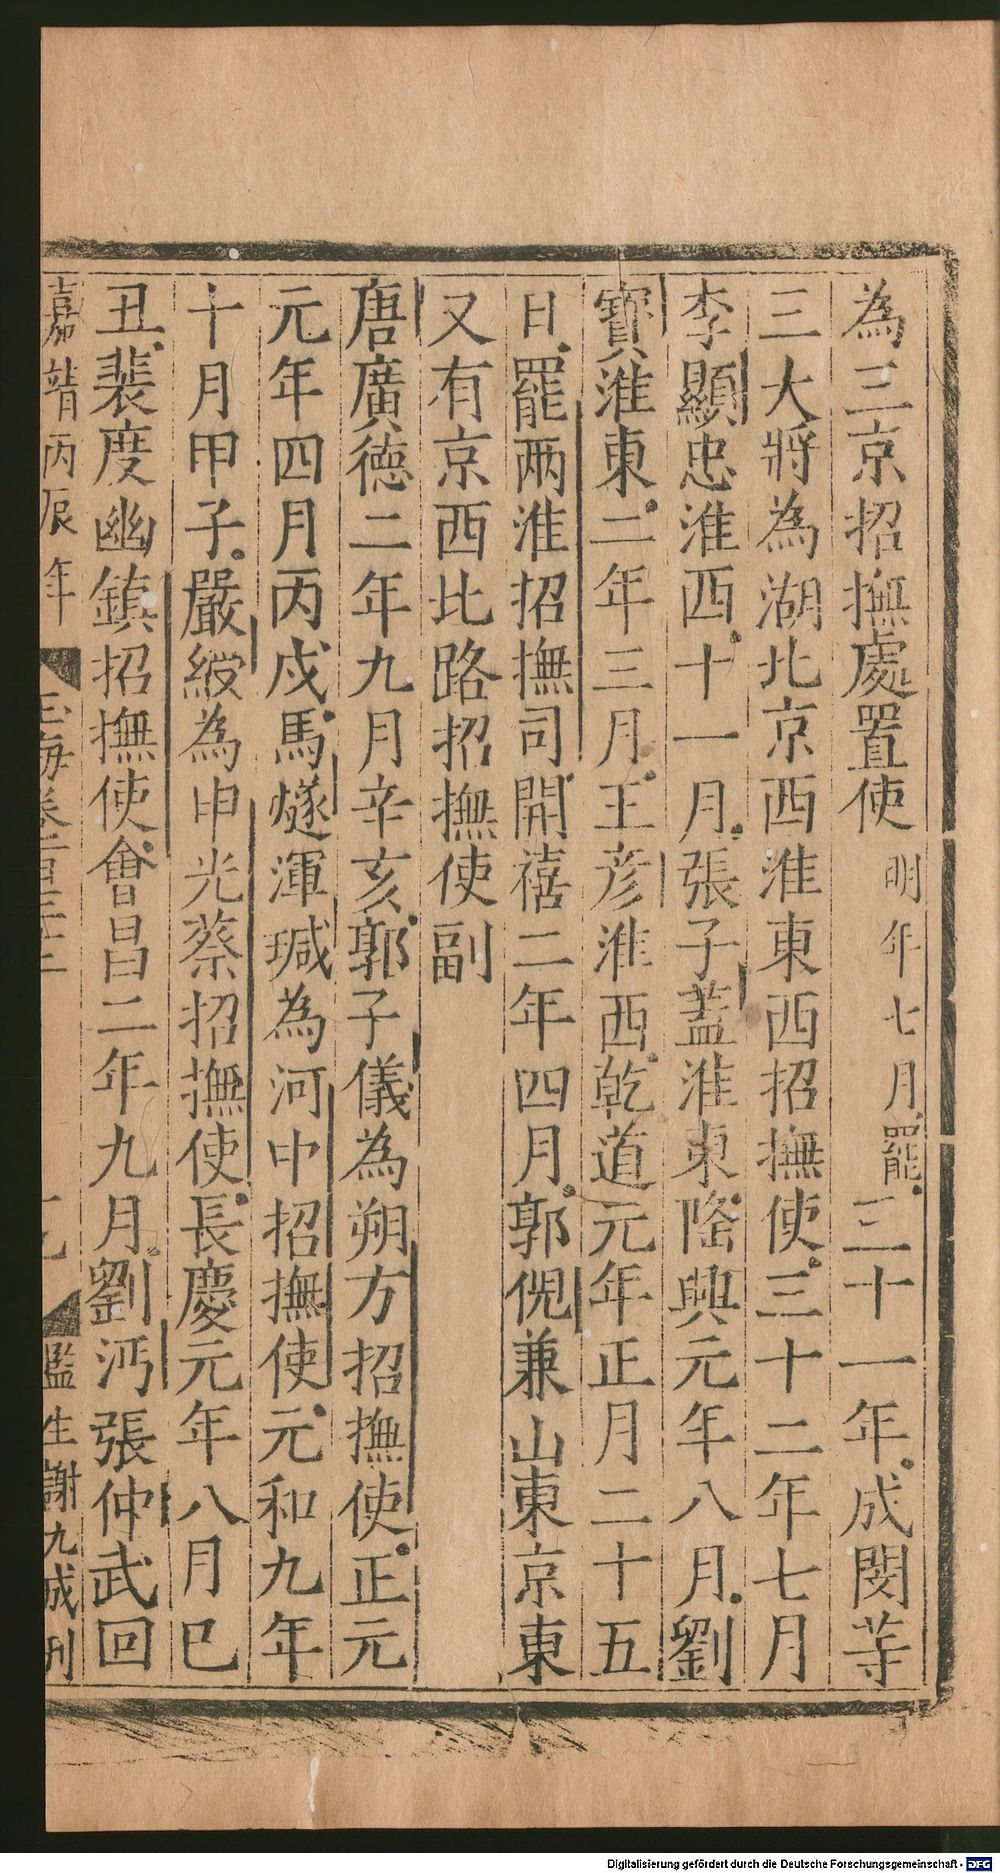 為三京招撫處置使明年七月罷三十一年成閔等
三大將為湖北京西淮東西招撫使三十二年七月
李顯忠淮西十一月張子蓋淮東隆興元年八月劉
寶淮東二年三月王彦淮西乾道元年正月二十五
日罷两淮招撫司開禧二年四月郭倪兼山東京東
又有京西北路招撫使副
唐廣德二年九月辛亥郭子儀為朔方招撫使正元
元年四月丙戌馬燧渾瑊為河中招撫使元和九年
十月甲子嚴綬為申光蔡招撫使長慶元年八月巳
丑裴度幽鎮招撫使會昌二年九月劉沔張仲武回
嘉靖丙辰年 玉海卷一百三十二 監生謝九成刊
Digitalisierung gefördert durch die Deutsche Forschungsgemeinschaft - DFG